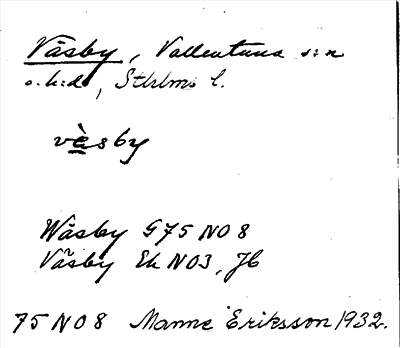 Väsby, Vallentuna s:n
o. h:d, Sthlms l.
vèsby
Wäsby G75 NO8
Väsby Ek NO3, JC
75 NO8 Manne Eriksson 1932.